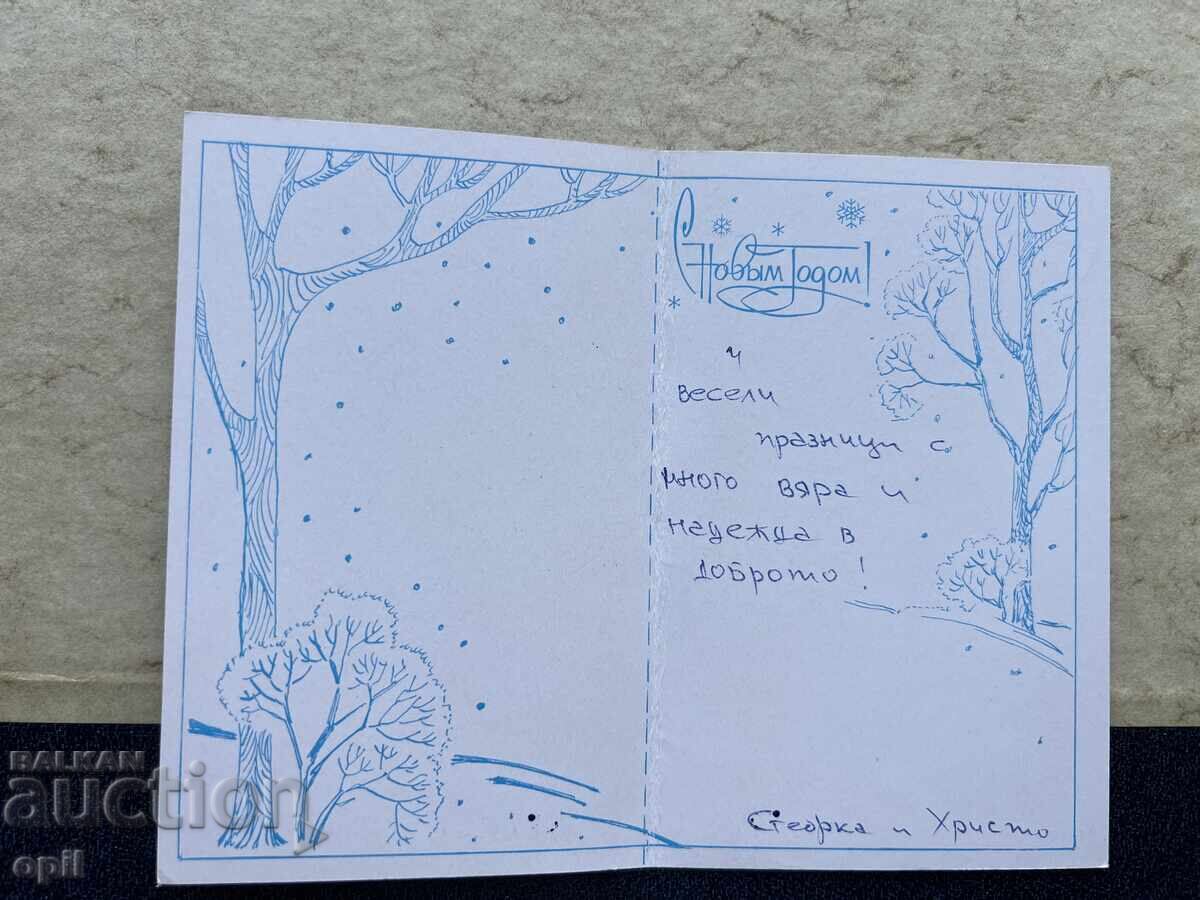 С Новым Годом!
и
весели
празници с
много вяра и
надежда в
доброто!
и Христо
BALKAN
auction
opil